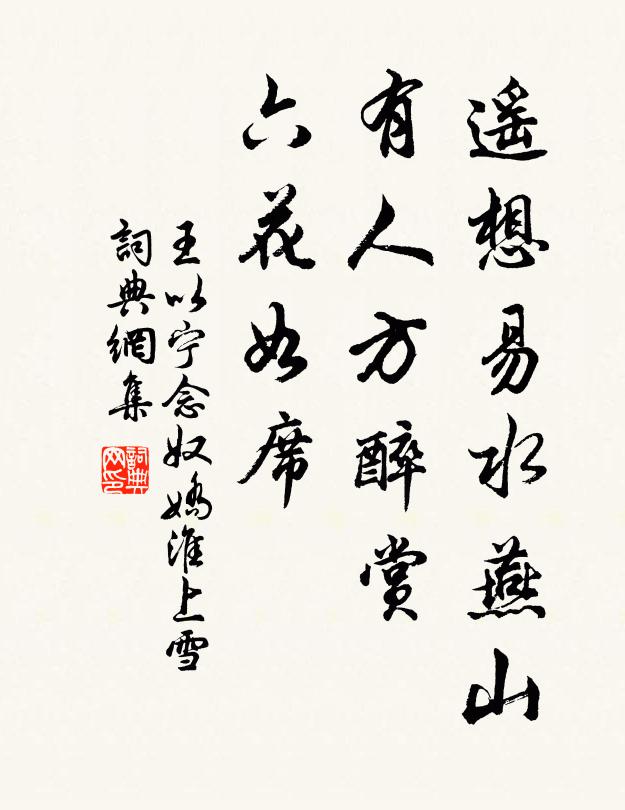 遥想易水燕山
有人方醉賞
六花如席
王以宁念奴嬌淮上雪
詞典網集
詞典网印